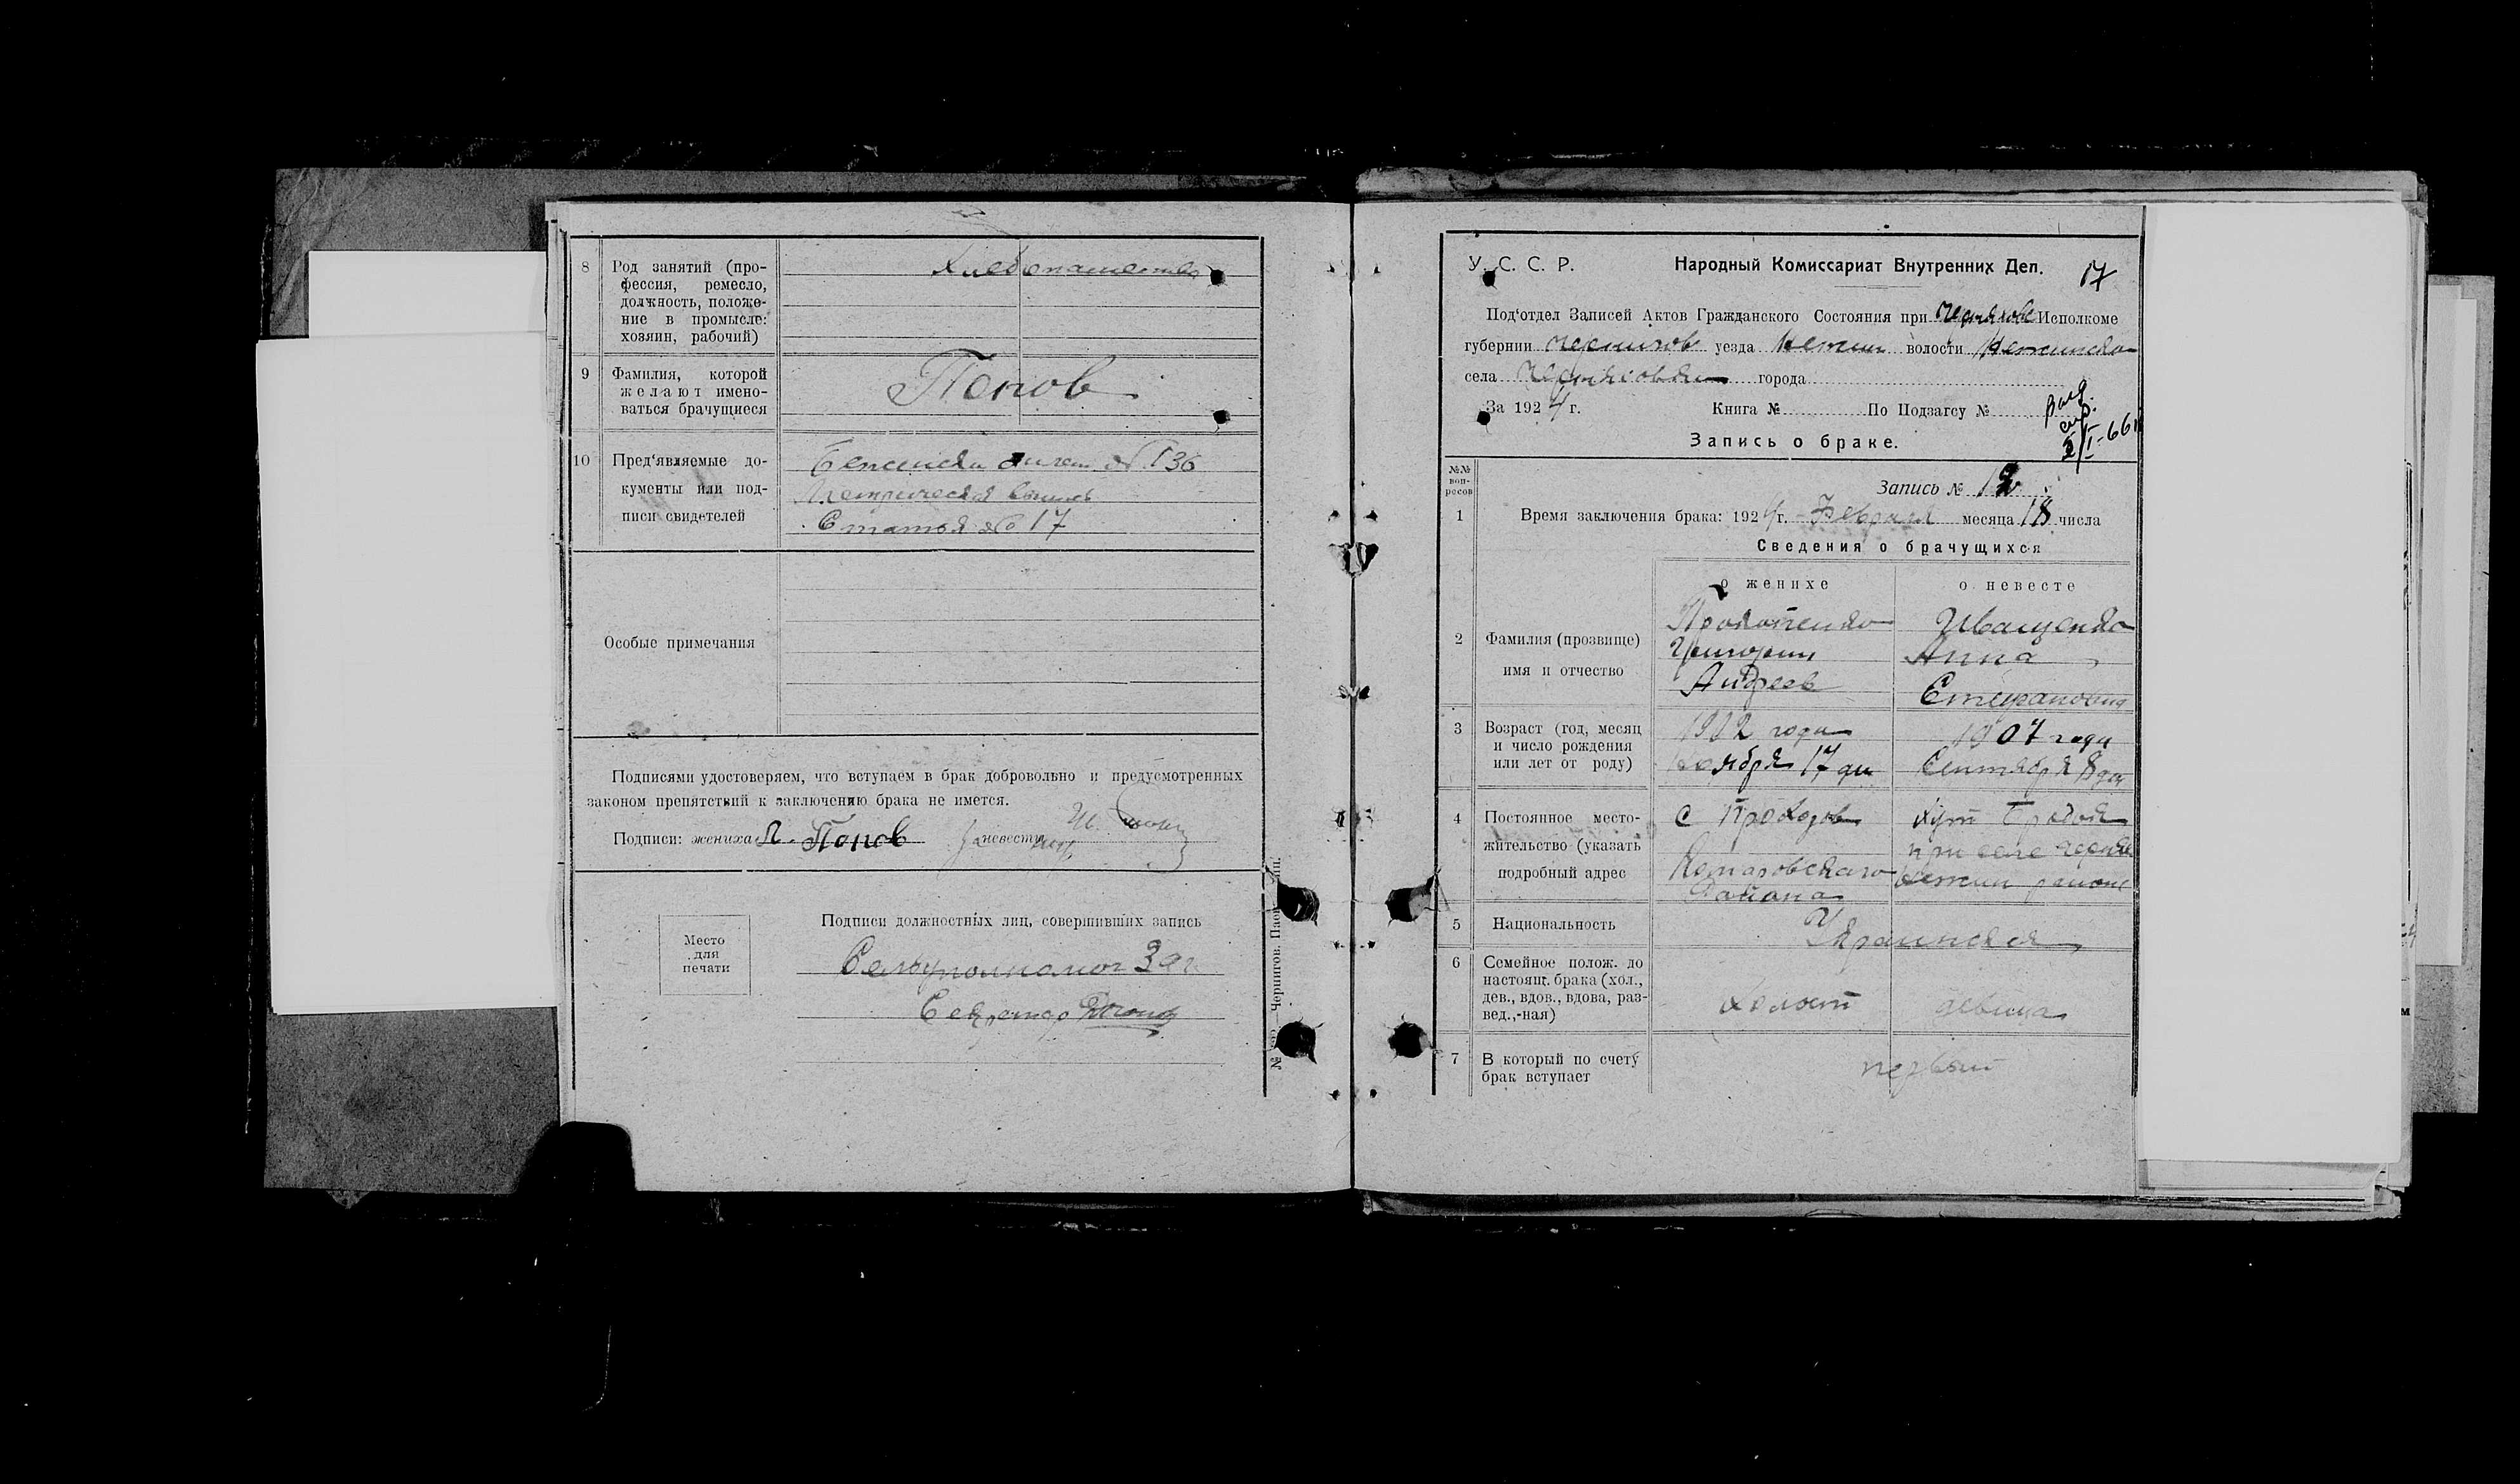 8 Род занятий (про-
фессия, ремесло,
должность, положе-
ние в промысле:
хозяин, рабочий)
Хлебопашество
9 Фамилия, которой
желают имено-
ваться брачущиеся
Попов
10 Пред‘являемые до-
кументы или под-
писи свидетелей
билет № 136
Метрическая выпись
Статья № 17
Особые примечания
Подписями удостоверяем, что вступаем в брак добровольно и предусмотренных
законом препятствий к заключению брака не имется.
Подписи: жениха Попов невесты
Место
для
печати
Подписи должностных лиц, совершивших запись
Секретар
Чернигов.
17
У. С. С. Р. Народный Комиссариат Внутренних Дел.
Под‘отдел Записей Актов Гражданского Состояния при Исполкоме
губернии Чернигов уезда Нежин волости Нежинско
села города
За 1924 г. Книга № По Подзагсу №
Запись о браке.
№№
воп-
росов
Запись №
1 Время заключения брака: 1924 г. Февраля месяца 18 числа
Сведения о брачущихся
о женихе о невесте
2 Фамилия (прозвище)
имя и отчество
Прокопенко
Григорий
Андреев
Иващенко
Анна
Степановна
3 Возраст (год, месяц
и число рождения
или лет от роду)
года
ноября 17 дн
1907 года
Сентября 8 дня
4 Постоянное место-
жительство (указать
подробный адрес
с Проходы
Комаровского
района
хут
при селе
Нежин района
5 Национальность
Украинская
6 Семейное полож. до
настоящ. брака (хол.,
дев., вдов., вдова, раз-
вед.,-ная)
холост
девица
7 В который по счету
брак вступает
первый